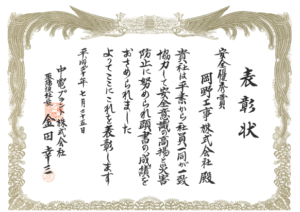 表彰状
安全優秀賞
岡野工事株式会社 殿
貴社は平素から社員一同が一致
協力して安全意識の高揚と災害
防止に努められ顕著の成績を
おさめられました
よってここにこれを表彰します
平成 年七月 五日
中電プラント株式会社
取締役社長 金田幸三